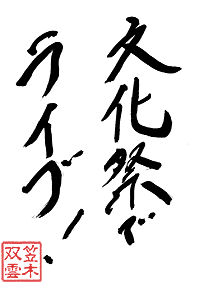 文化祭で
ライブ！
笠木
双雲